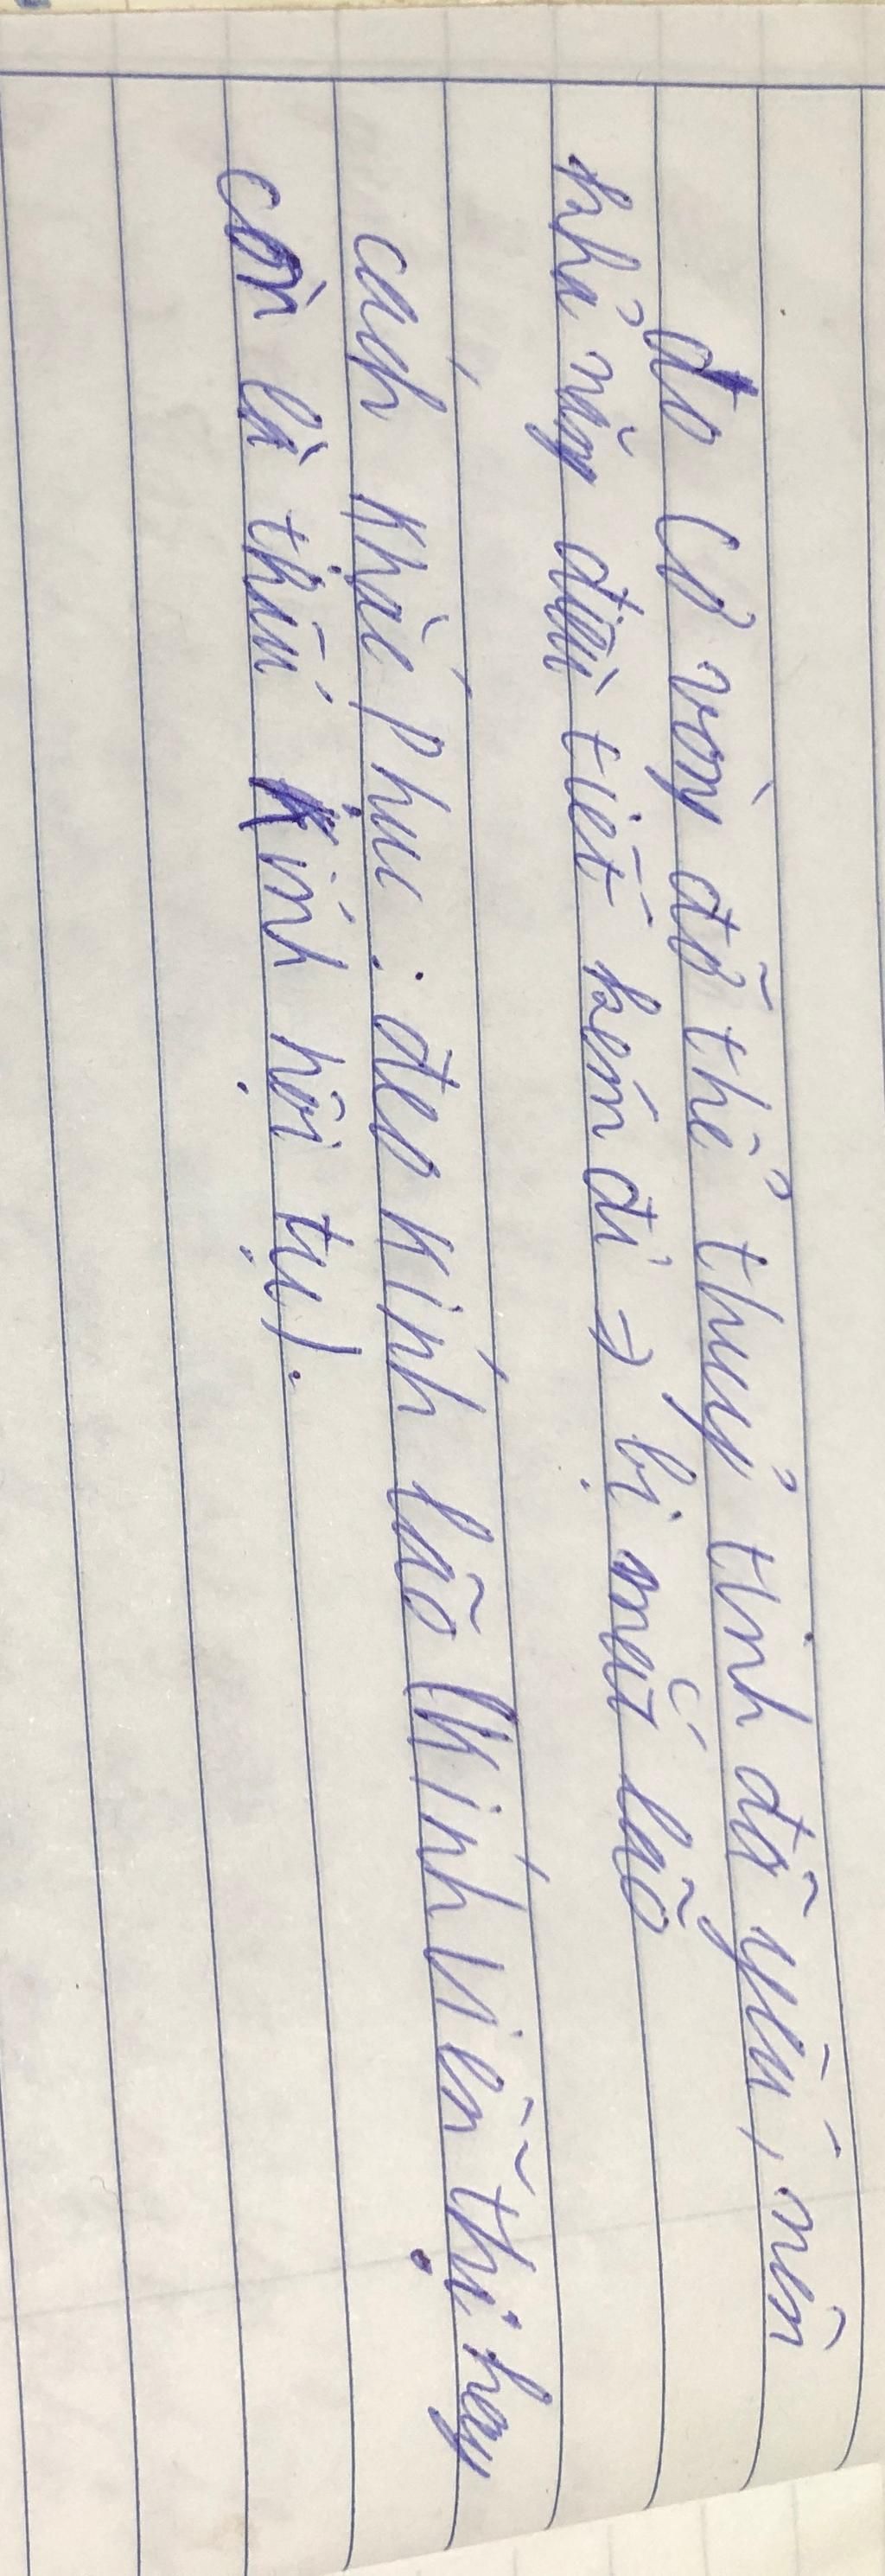 do cơ vòng đỡ thể thuỷ tinh đã yếu, nên
khả năng điều tiết kém đi => bị mắt lão
cách khắc phục : đeo kính lão (kính viễn thị hay
còn là thấu kính hội tụ).